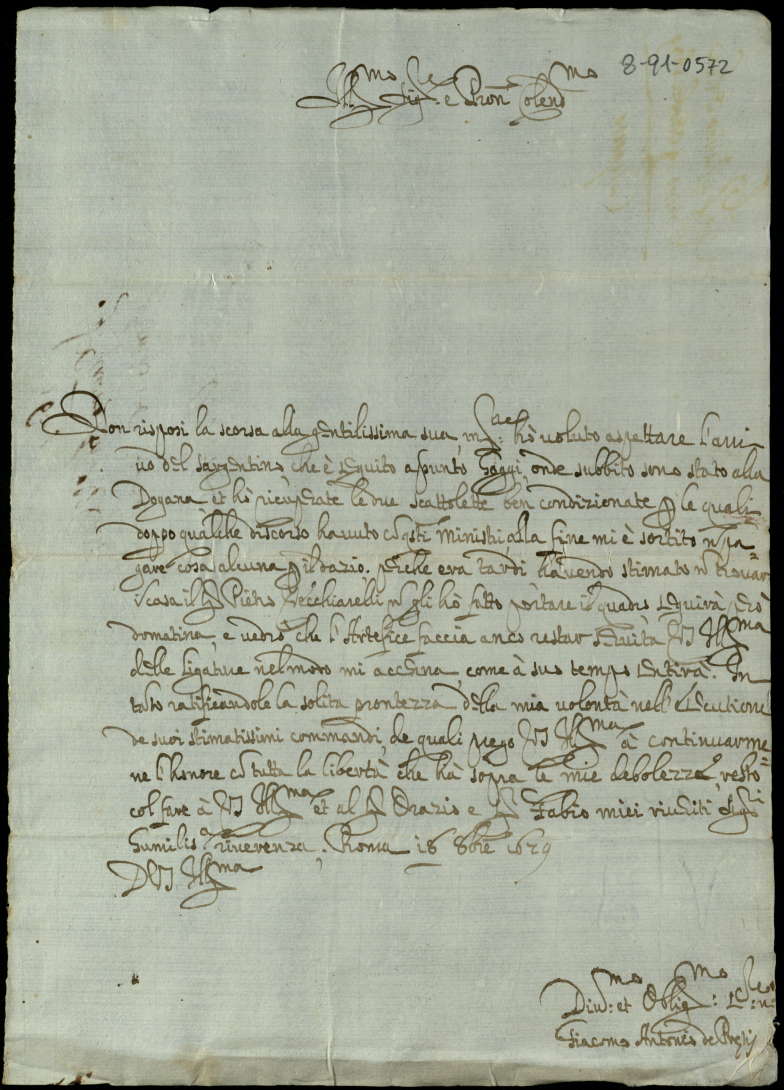 8-91-0572
Ill.mo Sig.re e Pron Colend.mo
Non risposi la scorsa alla gentilissima sua, hò voluto aspettare l'arri
uo del sargentino che è seguito apunto hoggi, onde subbito sono stato alla
Dogana et hò ricuperate le due scattolette ben condizionate p le quali
doppo qualche discorso hauuto cõ qsti Ministri, alla fine mi è sortito nõ pa
gare cosa alcuna p il dazio; perche era tardi havendo stimato nõ trouar
ĩ casa il S.r Pietro Vecchiarelli nõ gli hò fatto portare il quadro seguirà però
domatina, e uedrò che l'Artefice faccia anco restar seruita VS Ill.ma
delle ligature nel modo mi accenna, come à suo tempo sentirà. In
tãto ratificandole la solita prontezza della mia uolontà nell'essecutione
de suoi stimatissimi commandi, de quali prego VS Ill.ma à continuarme
ne l'honore cõ tutta la libertà che hà sopra le mie debolezze, resto
col fare à VS Ill.ma et al S.r Orazio e S.r Fabio miei riueriti Sig.ri
humilis.a riuerenza. Roma 18 8bre 1629
D VS Ill.ma
Diu.mo et Oblig.mo Se.re
Giacomo Antonio de Pretij